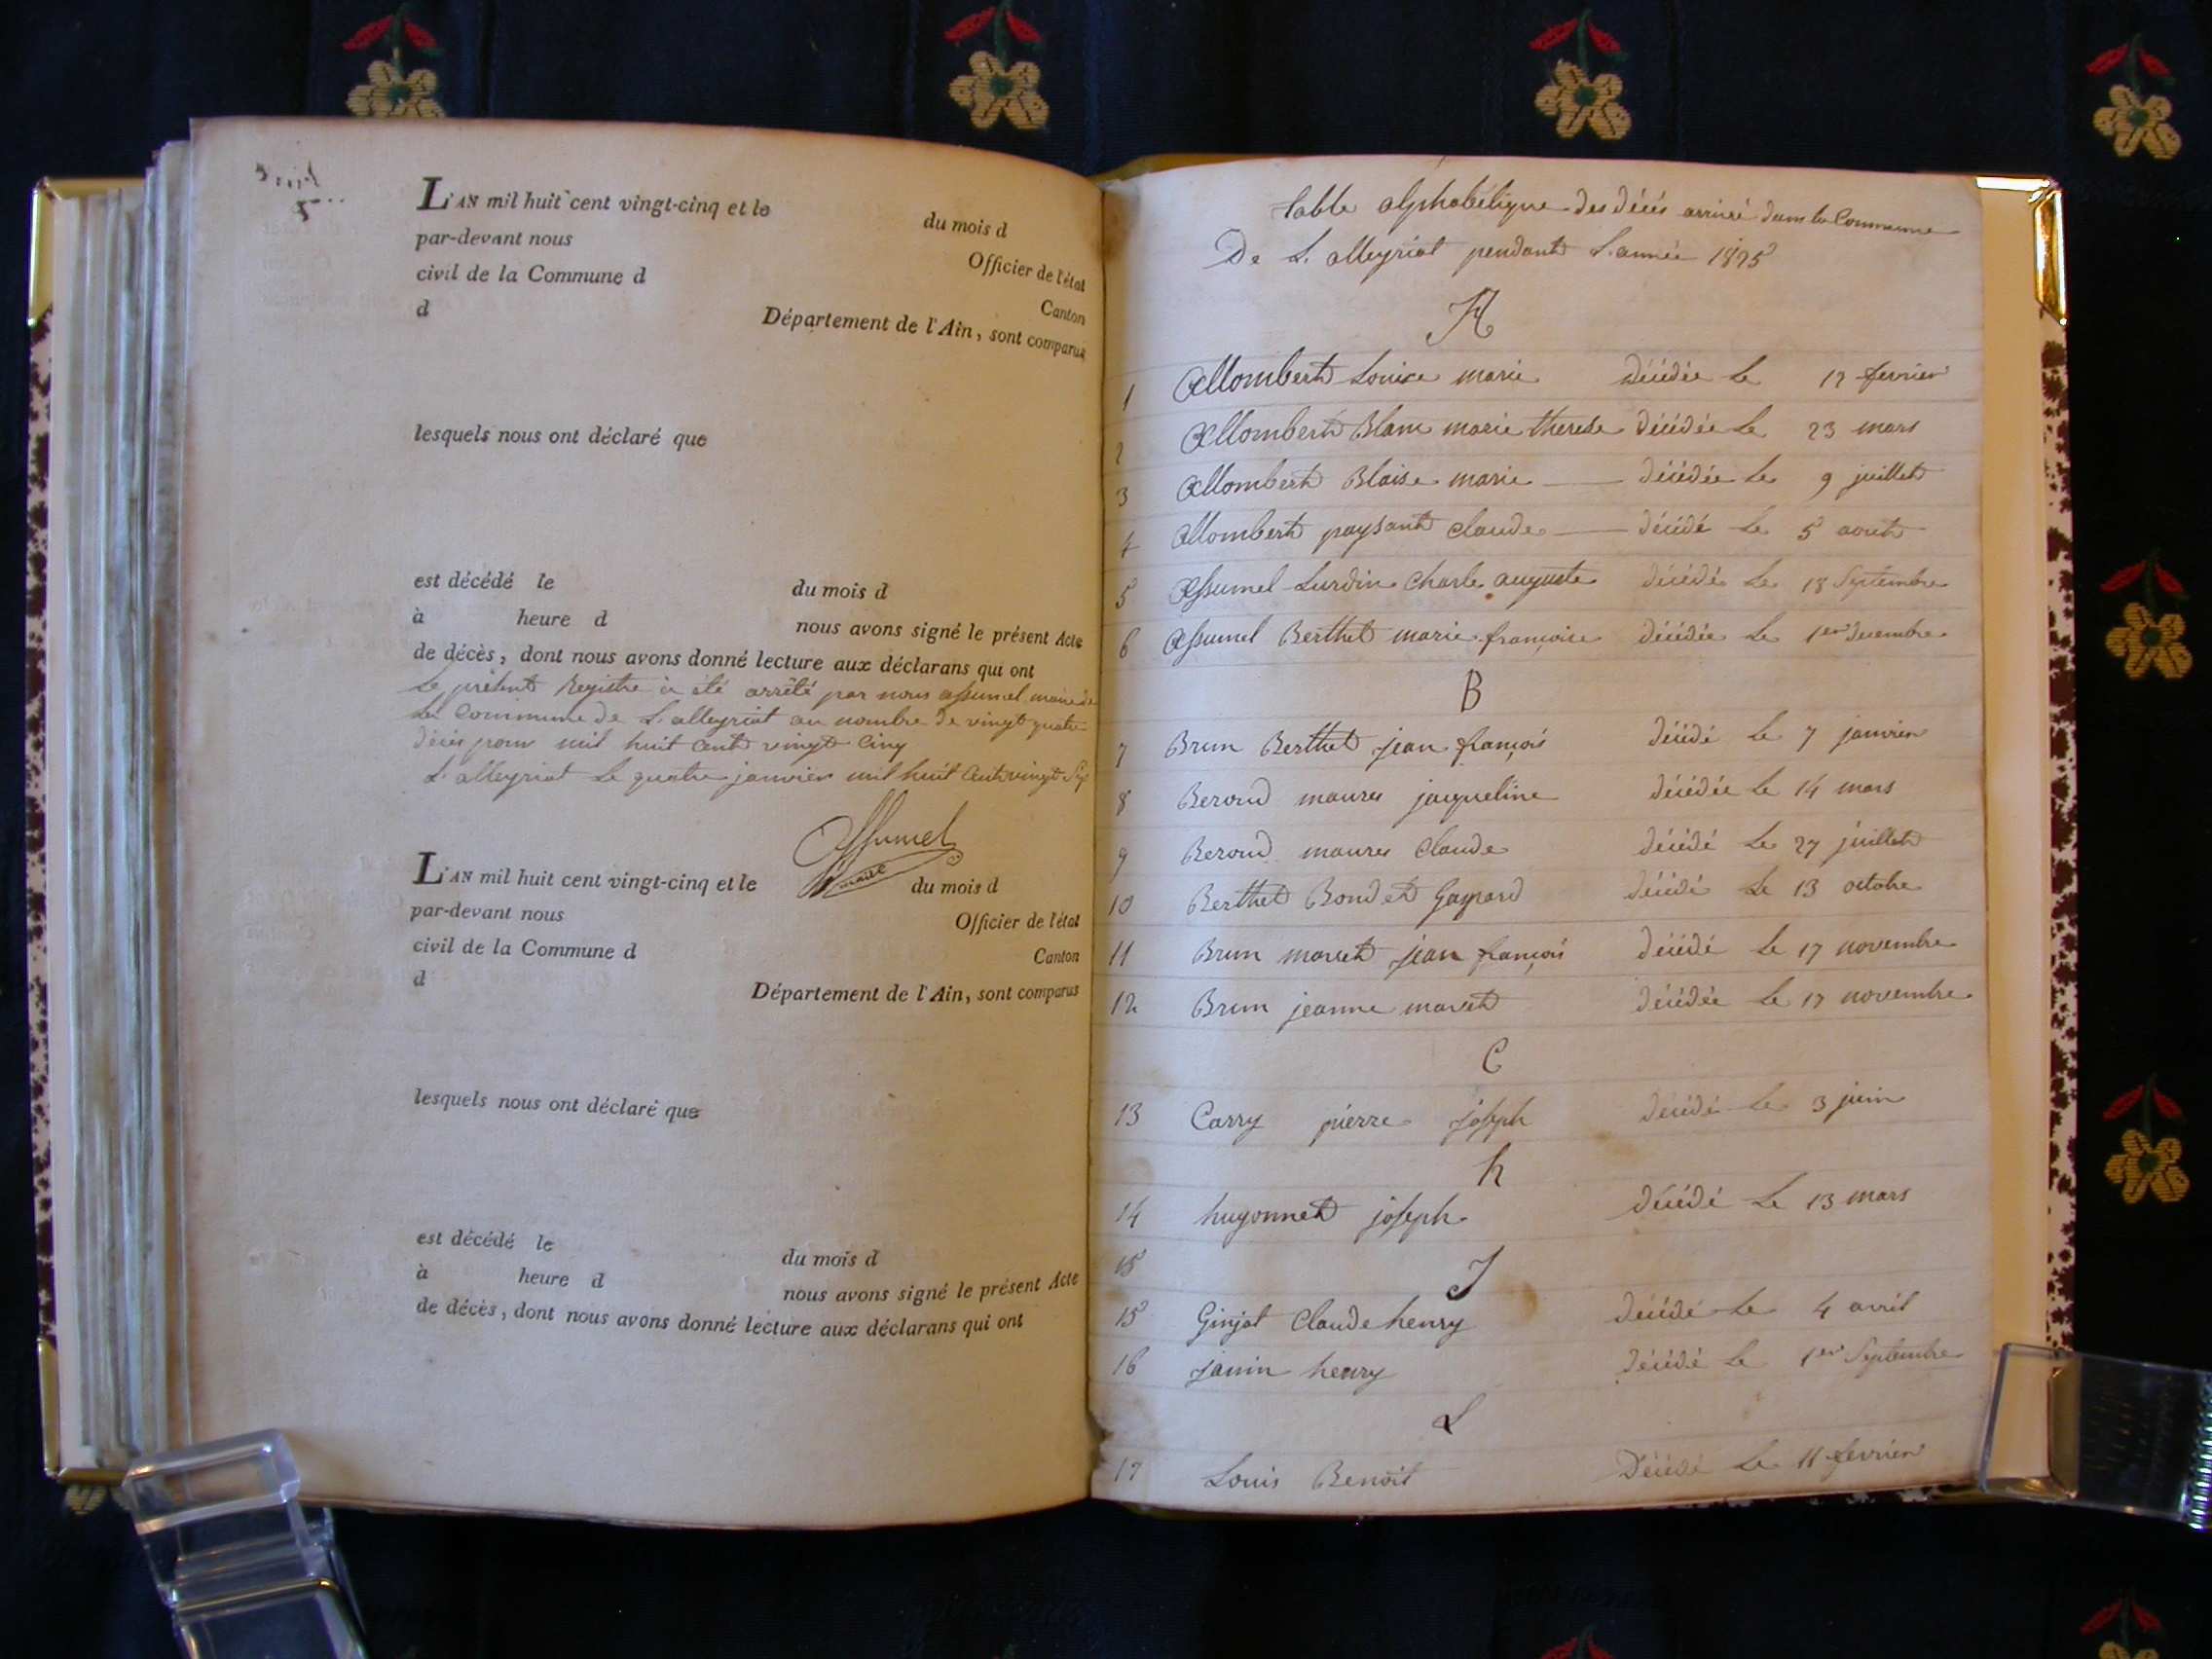 L'AN mil huit cent vingt-cinq et le du mois d
par-devant nous Officier de l'état
civil de la Commune d Canton
d Département de l'Ain, sont comparus
lesquels nous ont déclaré que
est décédé le du mois d
à heure d nous avons signé le présent Acte
de décès, dont nous avons donné lecture aux déclarans qui ont
Le présent Registre à été arrêté par nous assumel maire de
La Commune de L'alleyriat au nombre de vingt quatre
décés pour mil huit cent vingt cinq
L'alleyriat le quatre janvier mil huit cent vingt Six
Assumel
maire
L'AN mil huit cent vingt-cinq et le du mois d
par-devant nous Officier de l'état
civil de la Commune d Canton
d Département de l'Ain, sont comparus
lesquels nous ont déclaré que
est décédé le du mois d
à heure d nous avons signé le présent Acte
de décès, dont nous avons donné lecture aux déclarans qui ont
table alphabétique des décés arrivé dans la Commune
De L. alleyriat pendant L'année 1825
A
1 Allombert Louise marie décédée Le 12 fevrier
2 Allombert Blanc marie therese décédée Le 23 mars
3 Allombert Blaise marie décédée Le 9 juillet
4 Allombert paysant Claude décédé Le 5 aout
5 Assumel Lurdin Charle auguste décédé Le 18 Septembre
6 Assumel Berthet marie françoise décédée Le 1er decembre
B
7 Brun Berthet jean françois décédé Le 7 janvier
8 Beroud maures jacqueline décédée Le 14 mars
9 Beroud maures Claude décédé Le 27 juillet
10 Berthet Bondet Gaspard décédé Le 13 octobre
11 Brun maret jean françois décédé Le 17 novembre
12 Brun jeanne maret décédée Le 17 novembre
C
13 Carry pierre joseph décédé Le 3 juin
h
14 hugonnet joseph décédé Le 13 mars
15
J
15 Ginjat Claude henry décédé Le 4 avril
16 Janin henry décédé Le 1er Septembre
L
17 Louis Benoit Décédé Le 11 fevrier